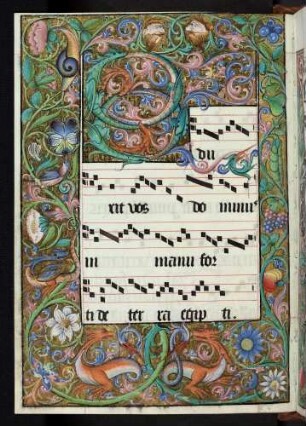 E du
xit vos do minus
in manu for
ti de ter ra egip ti.